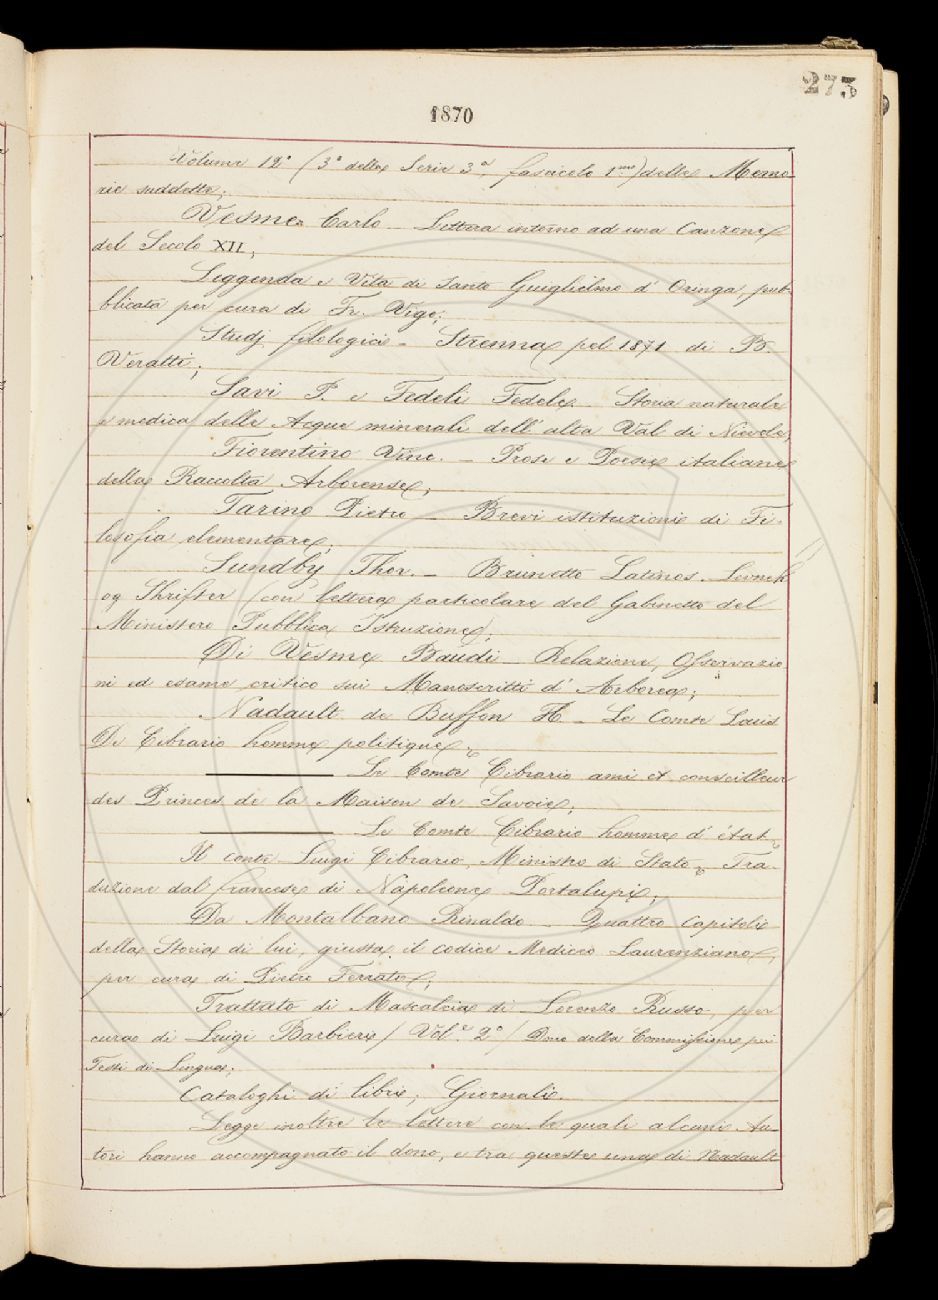 273
1870
Volume 12° (3° della Serie 3ª, fascicolo 1mo) delle Memo-
rie suddette;
Vesme Carlo - Lettera intorno ad una Canzone
del Secolo XII;
Leggenda e Vita di Santo Guiglielmo d'Oringa, pub-
blicata per cura di Fr. Vigo;
Studj filologici - Strenna pel 1871 di B.
Veratti;
Savi P. e Fedeli Fedele - Storia naturale
e medica delle Acque minerali dell'alta Val di Nievole;
Fiorentino Vinc. - Prose e Poesie italiane
della Raccolta Arborense;
Tarino Pietro - Brevi istituzioni di Fi-
losofia elementare;
Sundby Thor. - Brunetto Latinos Levnet
og Skrifter (con lettera particolare del Gabinetto del
Ministero Pubblica Istruzione);
Di Vesme Baudi - Relazione, Osservazio
ni ed esame critico sui Manoscritti d'Arborea;
Nadault de Buffon H. - Le Comte Louis
Di Cibrario homme politique;
Le Comte Cibrario ami et conseilleur
des Princes de la Maison de Savoie;
Le Comte Cibrario homme d'état;
Il conte Luigi Cibrario, Ministro di Stato; Tra-
duzione dal francese di Napoleone Portalupi;
Da Montalbano Rinaldo - Quattro Capitoli
della Storia di lui, giusta il codice Mediceo Laurenziano,
per cura di Pietro Ferrato;
Trattato di Mascalcia di Lorenzo Russo, per
cura di Luigi Barbieri / Vol.e 2° / Dono della Commissione pei
Testi di Lingua;
Cataloghi di libri; Giornali.
Legge inoltre le lettere con le quali alcuni Au-
tori hanno accompagnato il dono, e tra queste una di Nadault